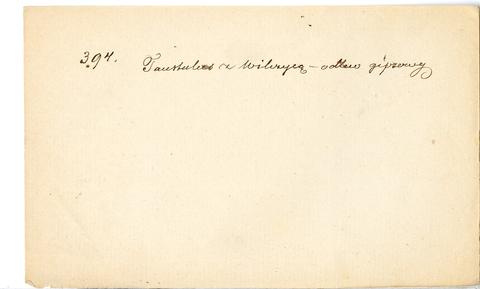 394. Faustulus z Wilczycą - odlew gipsowy